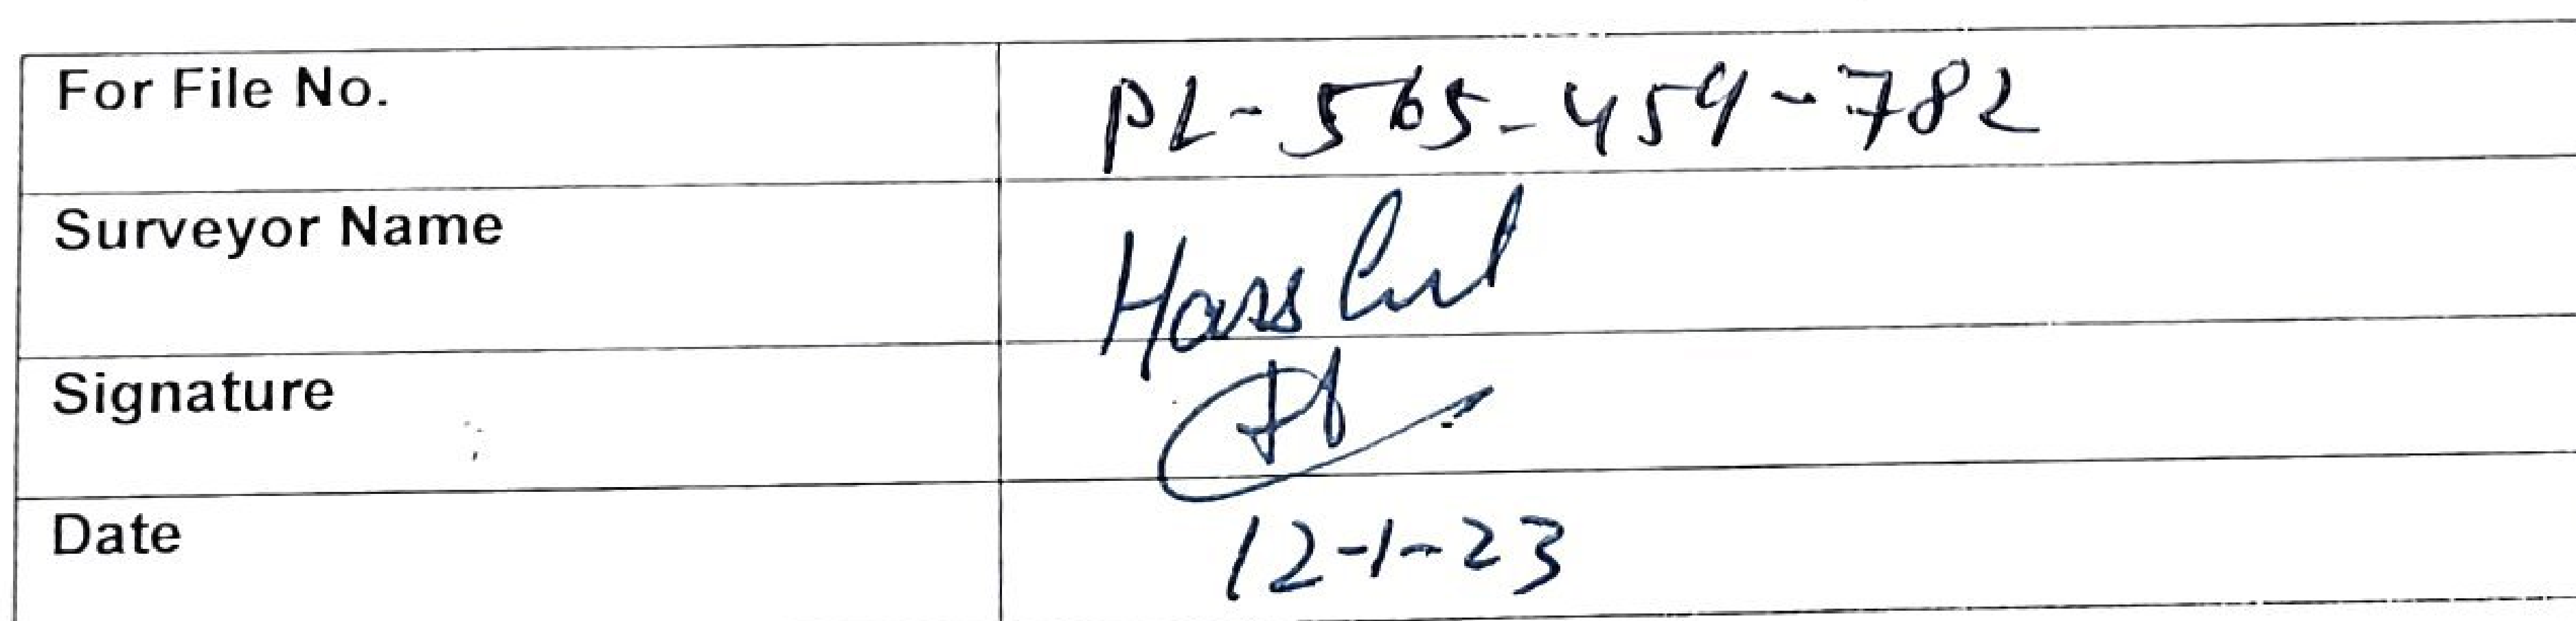 For File No. PL-565-459-782
Surveyor Name
Signature
Date 12-1-23